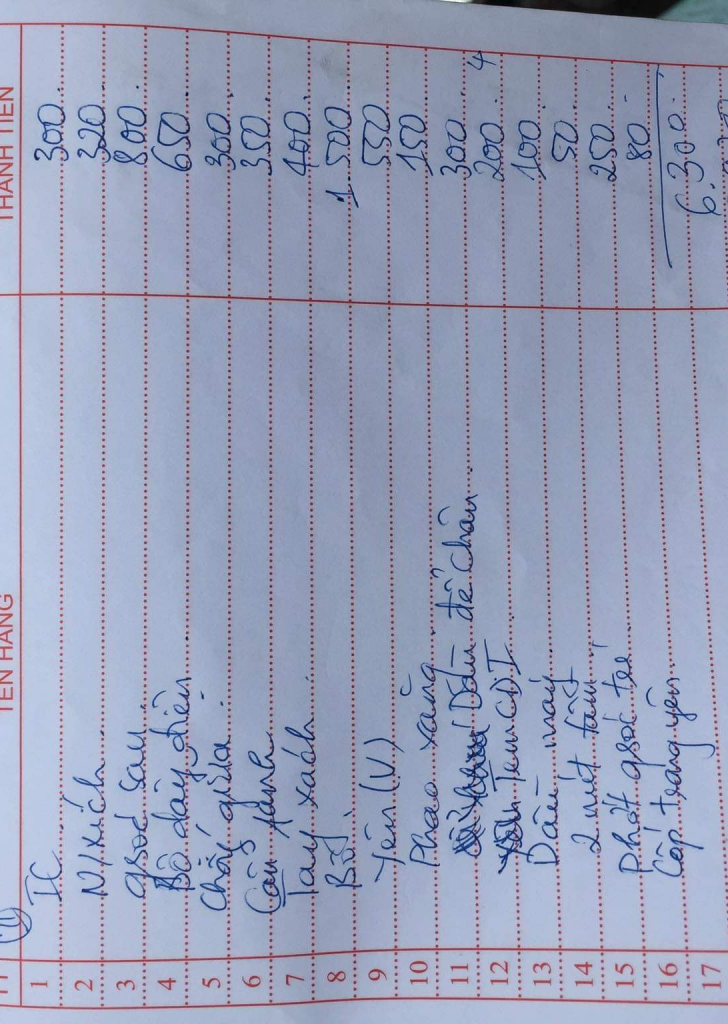 TT TÊN HÀNG THÀNH TIỀN
1 IC 300
2 N/xích 320
3 gsoc sau 800
4 Bộ dây điện 650
5 chắn giữa 300
6 Cần 350
7 Tay xách 400
8 Bô 1 500
9 Yên (V) 550
10 Phao xăng 150
11 Dàn để chân 300
12 Tem CDI 200 4
13 Dầu máy 100
14 2 nút 50
15 phớt gsoc 250
16 Cốp trong yên 80
17 6.300